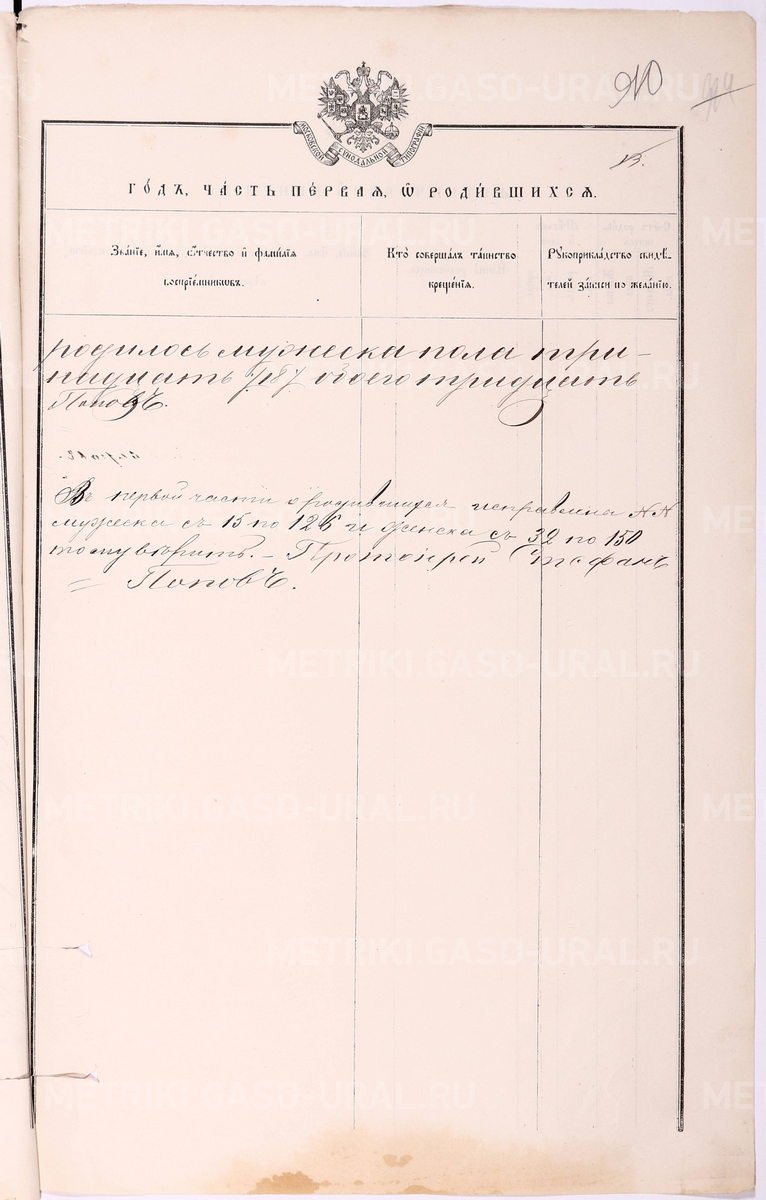 910
МОСКОВСКОЙ СѴНОДАЛЬНОЙ ТИПОГРАФІИ
ГО́ДЪ, ЧА́СТЬ ПЕ́РВАЯ, Ѽ РОДИ́ВШИХСЯ.
Зва́нїе, и҆́мѧ, ѻ҆́тчество и҆ фами́лїѧ
воспрїе́мниковъ.
Кто̀ соверша́лъ та́инство
креще́нїѧ.
Рꙋкоприкла́дство свидѣ́-
телей за́писи по жела́нїю.
родилось мужеска пола три-
надцать, обоего тридцать
Поповъ.
Въ первой части о родившихся исправлена №№
мужеска съ 15 по 126 и женска съ 32 по 150
тому вѣрить. – Протоіерей Стефанъ
= Поповъ.
METRIKI.GASO-URAL.RU